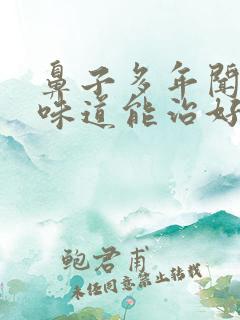 鼻子多年闻
味道能治好
鲍君甫
未经同意禁止转载